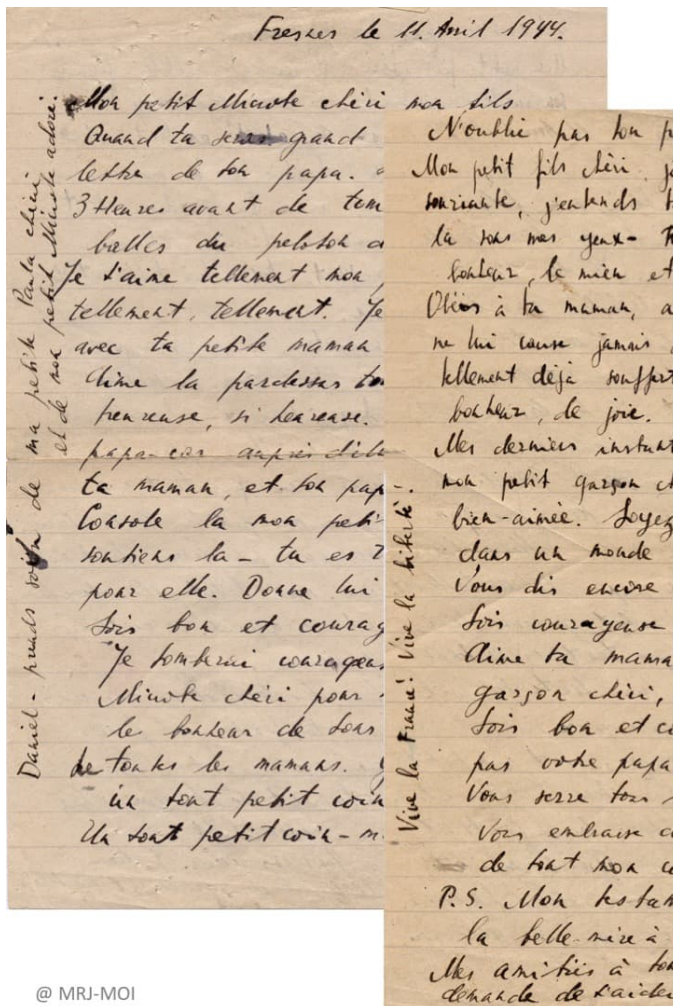 Fresnes le 11. Avril 1944.
Mon petit Minote chéri mon fils
Quand tu seras grand
lettre de ton papa.
3 Heures avant de tom
balles du peloton d
Je t'aime tellement mon
tellement, tellement. Je
avec ta petite maman
Aime la pardessus to
heureuse, si heureuse.
papa car auprès d'elle
ta maman, et ton pap
Console la mon peti
soutiens la - tu es t
pour elle. Donne lui
Sois bon et courag
Je tomberai courageus
Minote chéri pour
le bonheur de tous
de toutes les mamans.
un tout petit coin
Un tout petit coin - m
Daniel - prends soin de ma petite Paula chérie
et de mon petit Minote adoré.
N'oublie pas ton p
Mon petit fils chéri, j
souriante, j'entends t
la sous mes yeux -
bonheur, le mien et
Obéis à ta maman, a
ne lui cause jamais
tellement déjà souffert
bonheur, de joie.
Mes derniers instant
mon petit garçon ch
bien-aimée. Soyez
dans un monde
Vous dis encore
Sois courageuse
Aime ta mama
garçon chéri,
Sois bon et co
pas votre papa
Vous serre tous
Vous embrasse
de tout mon c
P.S. Mon testam
la belle-mère à
Mes amitiés à to
demande de t'aider
Vive la France! Vive la liberté!
@ MRJ-MOI